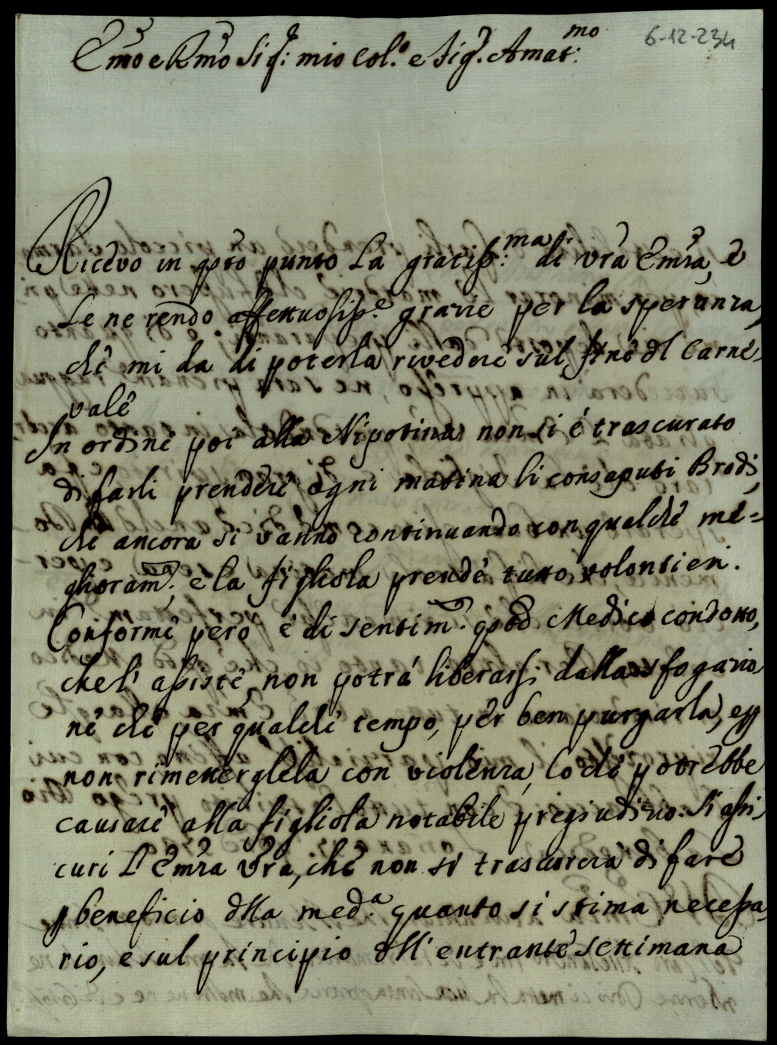 6-12-234
Emo e Rmo Sig:r mio Col.o e Sig.r Amat:mo
Ricevo in qsto punto La gratiss:ma di vra Emza, e
Le ne rendo affettuosiss.e grazie per la speranza,
chè mi da di poterla rivedere sul fine dl Carne-
vale
In ordine poi alla Nipotina non si è trascurato
di farli prendere ogni matina li consaputi Brodi,
chè ancora si vanno continuando con qualchè me-
glioram.to, e la figliola prende tutto volontieri.
Conforme però è di sentim.to qsto Medico condotto,
che l'assiste, non potrà liberarsi dalla sfogazio
ne chè per qualchè tempo, per ben purgarla, e p
non rimetterglela con violenza, lo chè potrebbe
causare alla figliola notabile pregiudizio. Si assi-
curi L'Emza Vra, chè non si trascurerà di fare
p beneficio dlla med.a quanto si stima necessa-
rio, e sul principio dll'entrante settimana